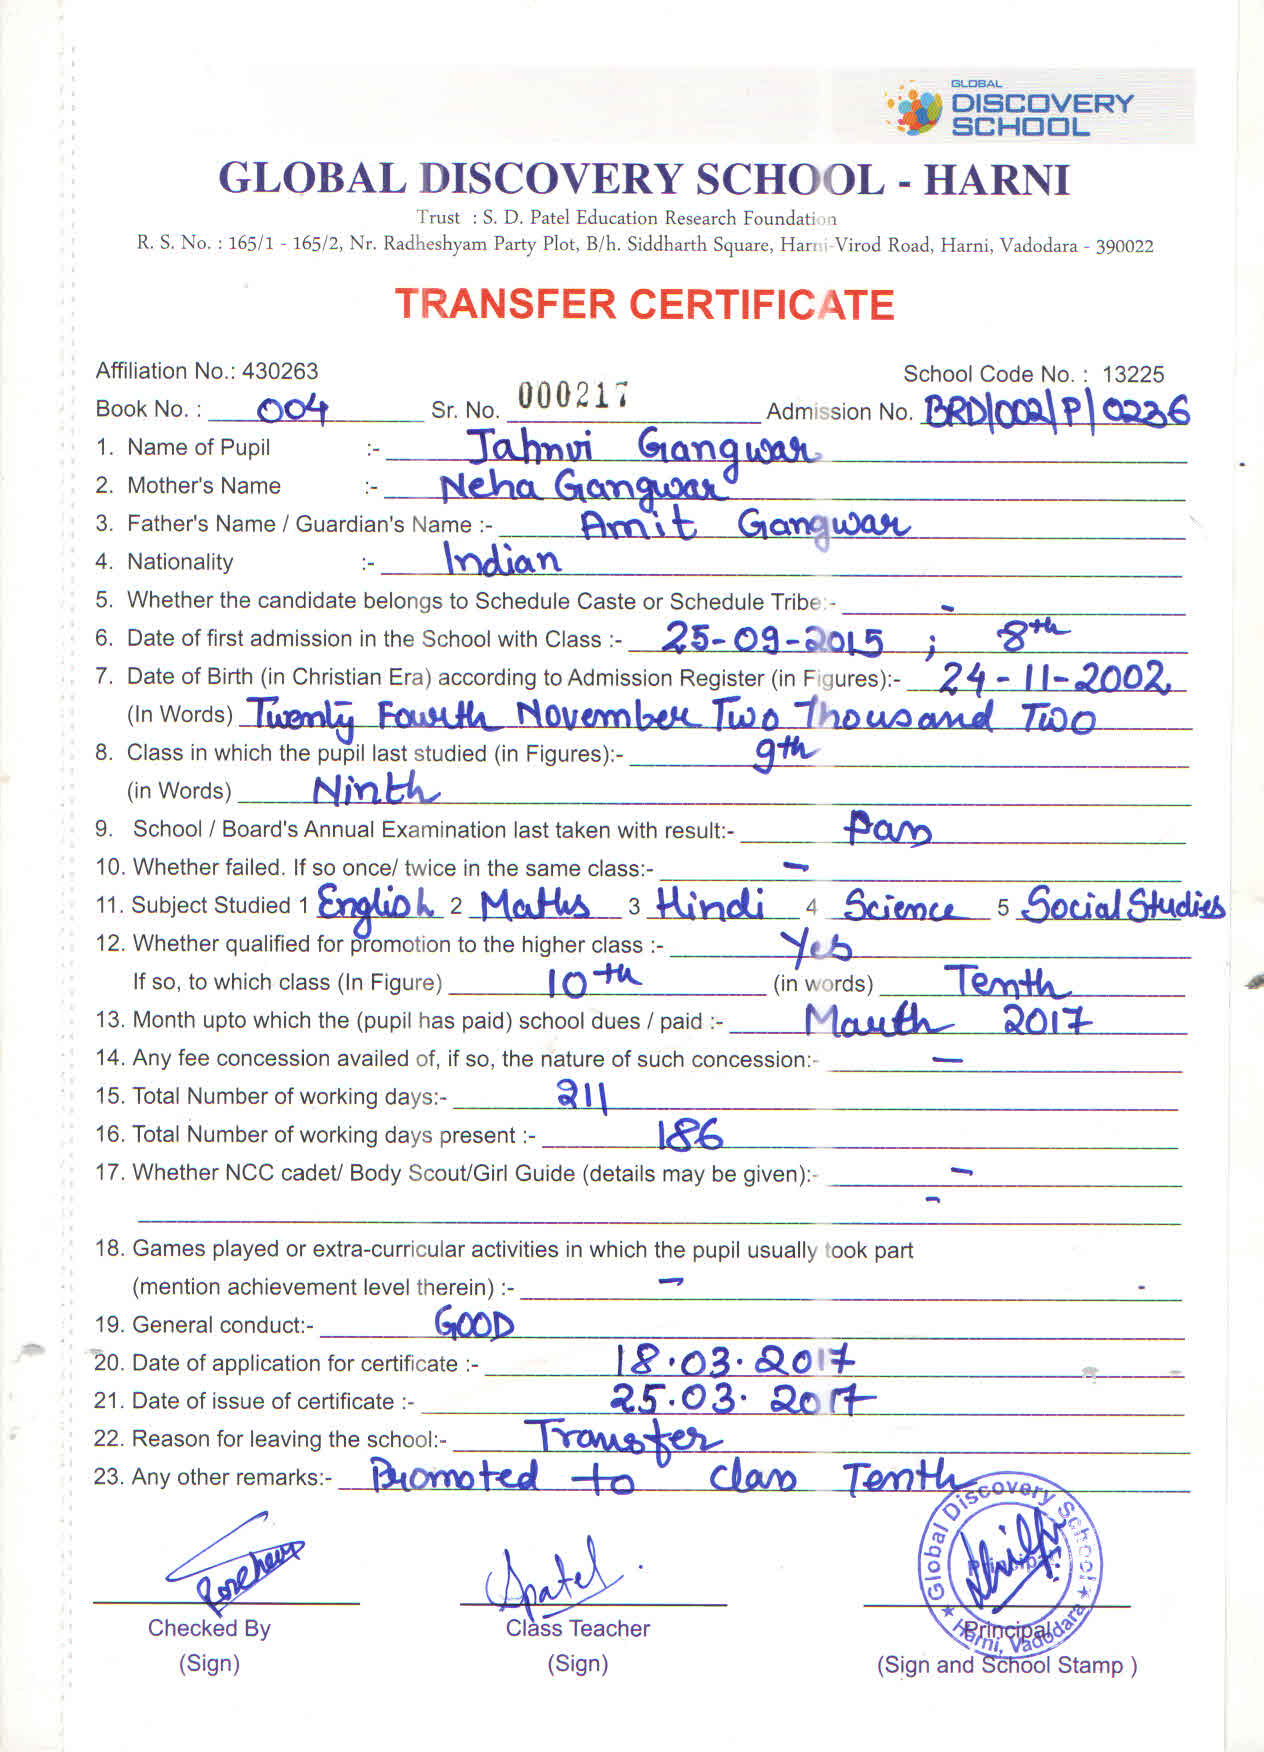 GLOBAL
DISCOVERY
SCHOOL
GLOBAL DISCOVERY SCHOOL - HARNI
Trust : S. D. Patel Education Research Foundation
R. S. No. : 165/1 - 165/2, Nr. Radheshyam Party Plot, B/h. Siddharth Square, Harni-Virod Road, Harni, Vadodara - 390022
TRANSFER CERTIFICATE
Affiliation No.: 430263 School Code No. : 13225
Book No. : 004 Sr. No. 000217 Admission No. BRD/002/P/0236
1. Name of Pupil :- Jahnvi Gangwar
2. Mother's Name :- Neha Gangwar
3. Father's Name / Guardian's Name :- Amit Gangwar
4. Nationality :- Indian
5. Whether the candidate belongs to Schedule Caste or Schedule Tribe:- -
6. Date of first admission in the School with Class :- 25-09-2015 ; 8th
7. Date of Birth (in Christian Era) according to Admission Register (in Figures):- 24-11-2002
(In Words) Twenty Fourth November Two Thousand Two
8. Class in which the pupil last studied (in Figures):- 9th
(in Words) Ninth
9. School / Board's Annual Examination last taken with result:- Pass
10. Whether failed. If so once/ twice in the same class:- -
11. Subject Studied 1 English 2 Maths 3 Hindi 4 Science 5 Social Studies
12. Whether qualified for promotion to the higher class :- Yes
If so, to which class (In Figure) 10th (in words) Tenth
13. Month upto which the (pupil has paid) school dues / paid :- March 2017
14. Any fee concession availed of, if so, the nature of such concession:- -
15. Total Number of working days:- 211
16. Total Number of working days present :- 186
17. Whether NCC cadet/ Body Scout/Girl Guide (details may be given):- -
-
18. Games played or extra-curricular activities in which the pupil usually took part
(mention achievement level therein) :- -
19. General conduct:- GOOD
20. Date of application for certificate :- 18.03.2017
21. Date of issue of certificate :- 25.03.2017
22. Reason for leaving the school:- Transfer
23. Any other remarks:- Promoted to class Tenth
Global Discovery School
Principal
★ Harni, Vadodara ★
Spatel
Checked By Class Teacher Principal
(Sign) (Sign) (Sign and School Stamp )